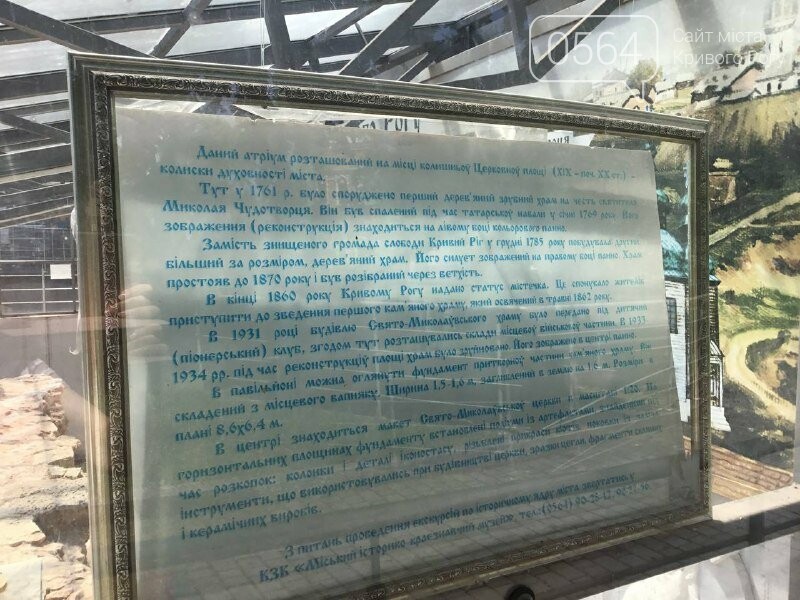 0564
Сайт міста
Кривого Рогу
РОГУ
Даний атріум розташований на місці колишньої Церковної площі (XIX – поч. XX ст.) –
колиски духовності міста.
Тут у 1761 р. було споруджено перший дерев'яний зрубний храм на честь святителя
Миколая Чудотворця. Він був спалений під час татарської навали у січні 1769 року. Його
зображення (реконструкція) знаходиться на лівому боці кольорового панно.
Замість знищеного громада слободи Кривий Ріг у грудні 1785 року побудувала другий,
більший за розміром, дерев'яний храм. Його силует зображений на правому боці панно. Храм
простояв до 1870 року і був розібраний через ветхість.
В кінці 1860 року Кривому Рогу надано статус містечка. Це спонукало жителів
приступити до зведення першого кам'яного храму, який освячений в травні 1862 року.
В 1931 році будівлю Свято-Миколаївського храму було передано під дитячий
(піонерський) клуб, згодом тут розташувались склади місцевої військової частини. В 1933
1934 рр. під час реконструкції площі храм було зруйновано. Його зображено в центрі панно.
В павільйоні можна оглянути фундамент притворної частини кам'яного храму. Він
складений з місцевого вапняку. Ширина 1,5-1,6 м, заглиблений в землю на 1,0 м. Розміри в
плані 8,6х6,4 м.
В центрі знаходиться макет Свято-Миколаївської церкви в масштабі 1:20. На
горизонтальних площинах фундаменту встановлені подіуми із артефактами, знайденими під
час розкопок: колонки і деталі іконостасу, різьблені прикраси
інструменти, що використовувались при будівництві церкви, зразки цегли, фрагменти скляних
і керамічних виробів.
З питань проведення екскурсій по історичному ядру міста звертатись у
КЗК «Міський історико-краєзнавчий музей», тел.:(0564)